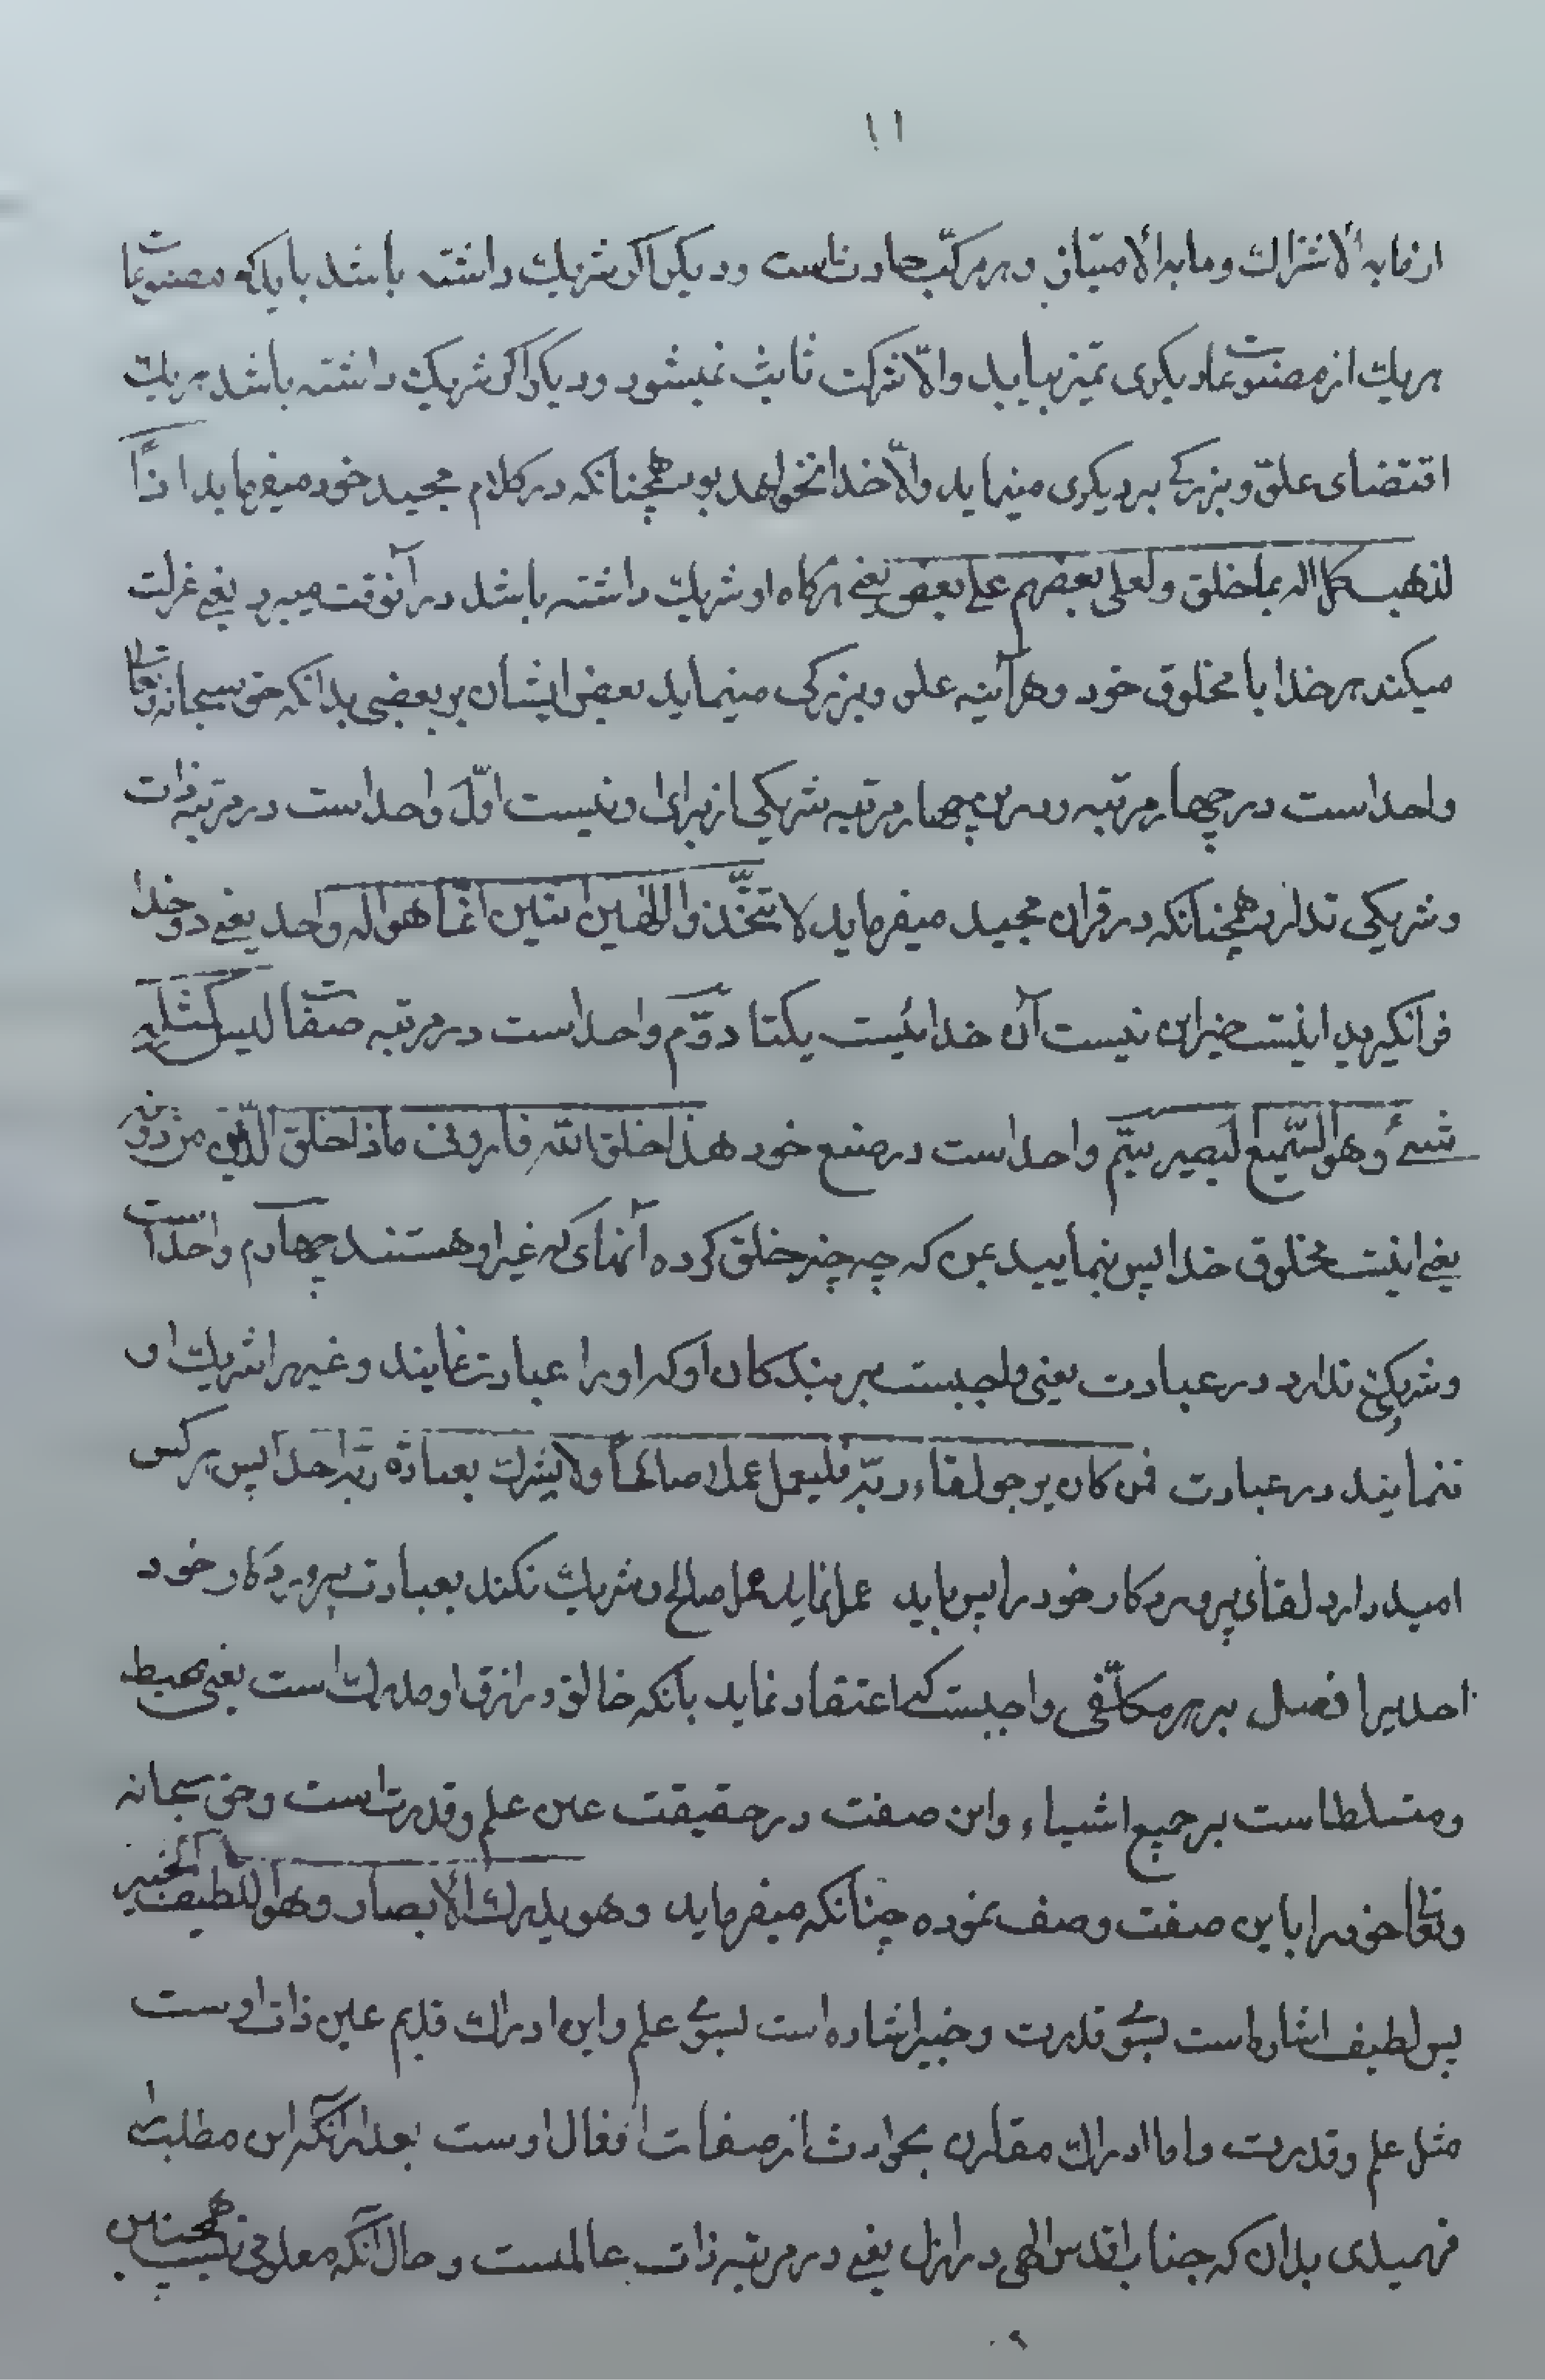 ۱۱
از ما به الاشتراك و ما به الامتیاز و هر مرکّب حادث است و دیکر اکر شریك داشته باشد باید که مصنوعات
هر یك از مصنوعات دیکری تمیز بیابد والّا شرکت ثابت نمیشود و دیکر اکر شریك داشته باشد هر یك
اقتضای علوّ و بزرکے بر دیکری مینماید والّا خدا نخواهد بود همچنانکه در کلام مجید خود میفرماید اذًا
لذهب کل اله بما خلق و لعلی بعضهم علے بعض یعنے هرکاه او شریك داشته باشد در آنوقت میبرد یعنے عزلت
میکند هر خدا با مخلوق خود و هرآینه علو و بزرکی مینماید بعض ایشان بر بعضی بدانکه حق سبحانه و تعالی
واحد است در چهار مرتبه و در این چهار مرتبه شریکی از برای او نیست اوّل واحد است در مرتبه ذات
و شریکی ندارد همچنانکه در قران مجید میفرماید لا تتّخذوا الٰهین اثنین انّما هو اله واحد یعنے دو خدا
فرانکیرید اینست غیر این نیست آن خدائیست یکتا دوّم واحد است در مرتبه صفات لیس کمثله
شیئ و هو السّمیع البصیر سیّم واحد است در صنع خود هذا خلق الله فارونی ماذا خلق الّذین من دونه
یعنے اینست مخلوق خدا پس بنمایید بمن که چه چیز خلق کرده آنهای که غیر او هستند چهارم واحد است
و شریکی ندارد در عبادت یعنی واجبست بر بندکان او که او را عبادت نمایند و غیر را شریك او
ننمایند در عبادت فمن کان یرجو لقاء ربّه فلیعمل عملا صالحاً ولا یشرك بعبادة ربّه احداً پس هر کس
امید دارد لقای پروردکار خود را پس باید عمل نماید عمل صالح و شریك نکند بعبادت پروردکار خود
احدیرا فصل بر هر مکلّفی واجبست که اعتقاد نماید بانکه خالق و رازق او مدرك است یعنی محیط
و متسلط است بر جمیع اشیاء و این صفت در حقیقت عین علم و قدرت است و حق سبحانه
و تعالی خود را باین صفت وصف نموده چنانکه میفرماید و هو یدرك الابصار و هو اللّطیف الخبیر
پس لطیف اشاره است بسوی قدرت و خبیر اشاره است بسوی علم و این ادراك قدیم عین ذات اوست
مثل علم و قدرت و اما ادراك مقارن بحوادث از صفات افعال اوست بعد از آنکه این مطلب را
فهمیدی بدان که جناب اقدس الهی در ازل یعنے در مرتبه ذات عالمست و حال آنکه معلومی نیست همچنین